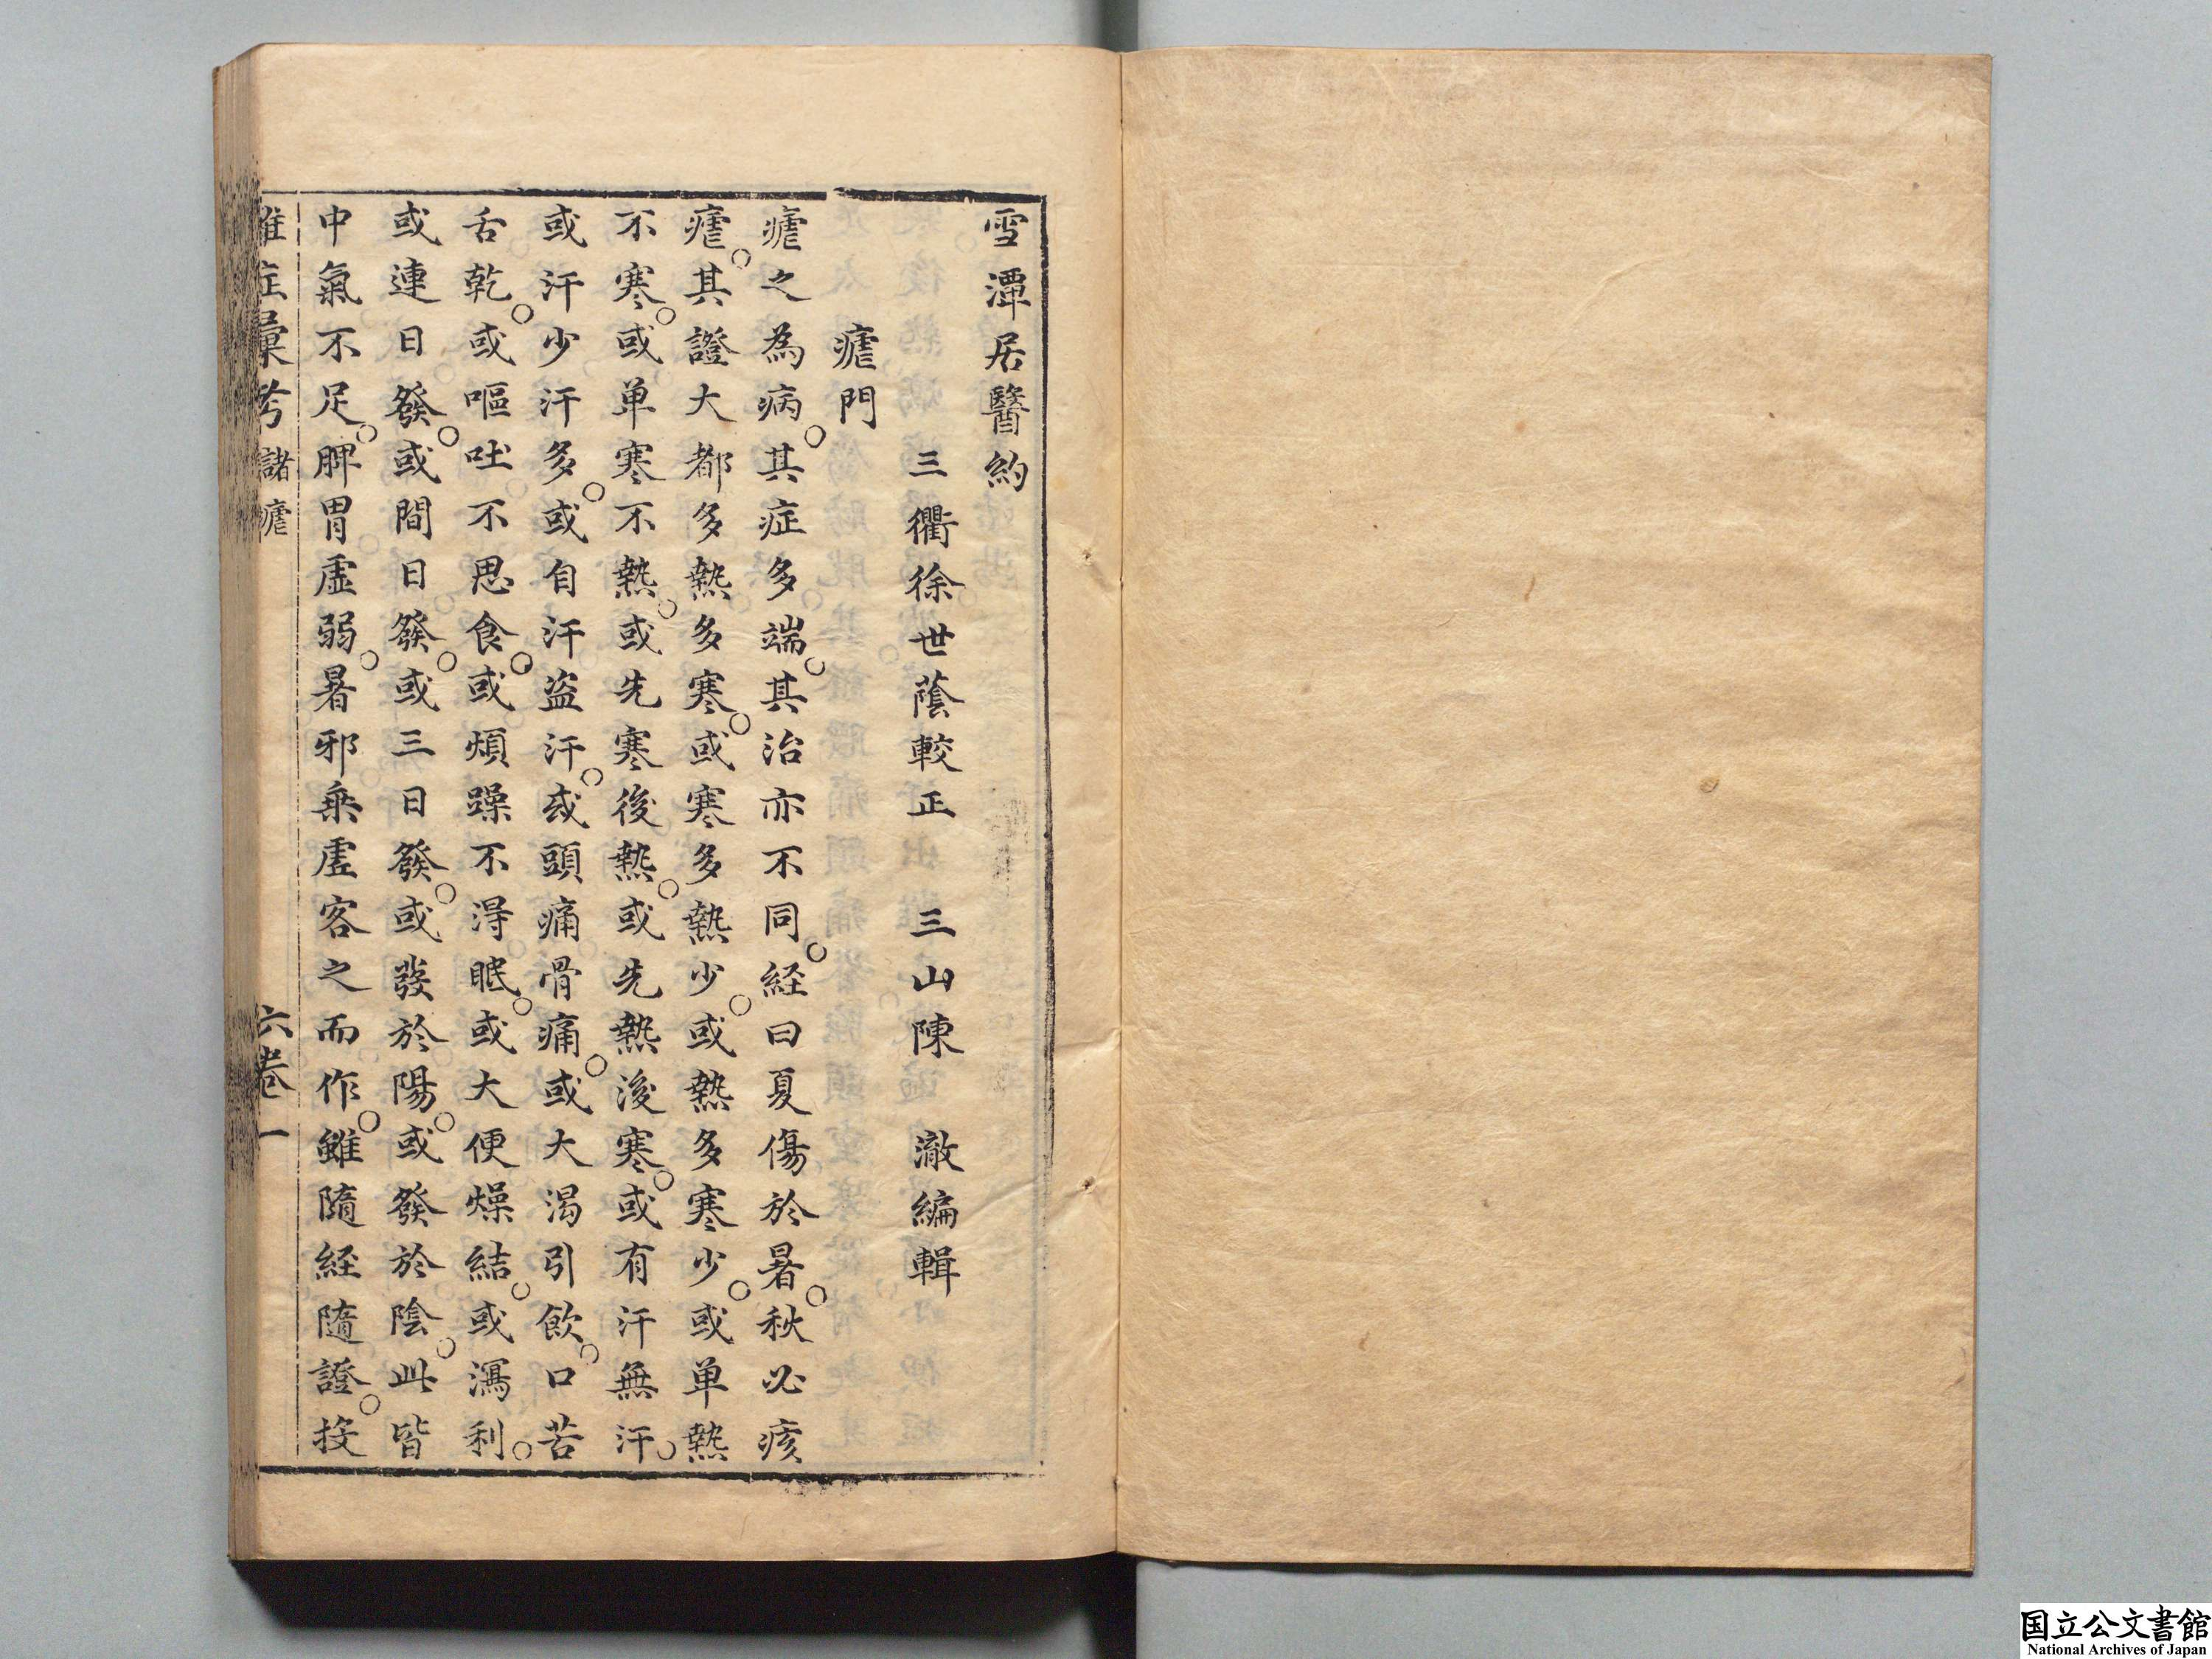 雪潭居醫約
三衢徐世蔭較正　三山陳　澈編輯
瘧門
瘧之為病。其症多端。其治亦不同。経曰夏傷於暑。秋必痎
瘧。其證大都多熱多寒。或寒多熱少。或熱多寒少。或单熱
不寒。或单寒不熱。或先寒後熱。或先熱後寒。或有汗無汗。
或汗少汗多。或自汗盜汗。或頭痛骨痛。或大渴引飲。口苦
舌乾。或嘔吐不思食。或煩躁不得眠。或大便燥結。或瀉利。
或連日發。或間日發。或三日發。或發於陽。或發於陰。此皆
中氣不足。脾胃虛弱。暑邪乘虛客之而作。雖隨経隨證。投
雜症彙考 諸瘧 六卷 一
国立公文書館
National Archives of Japan